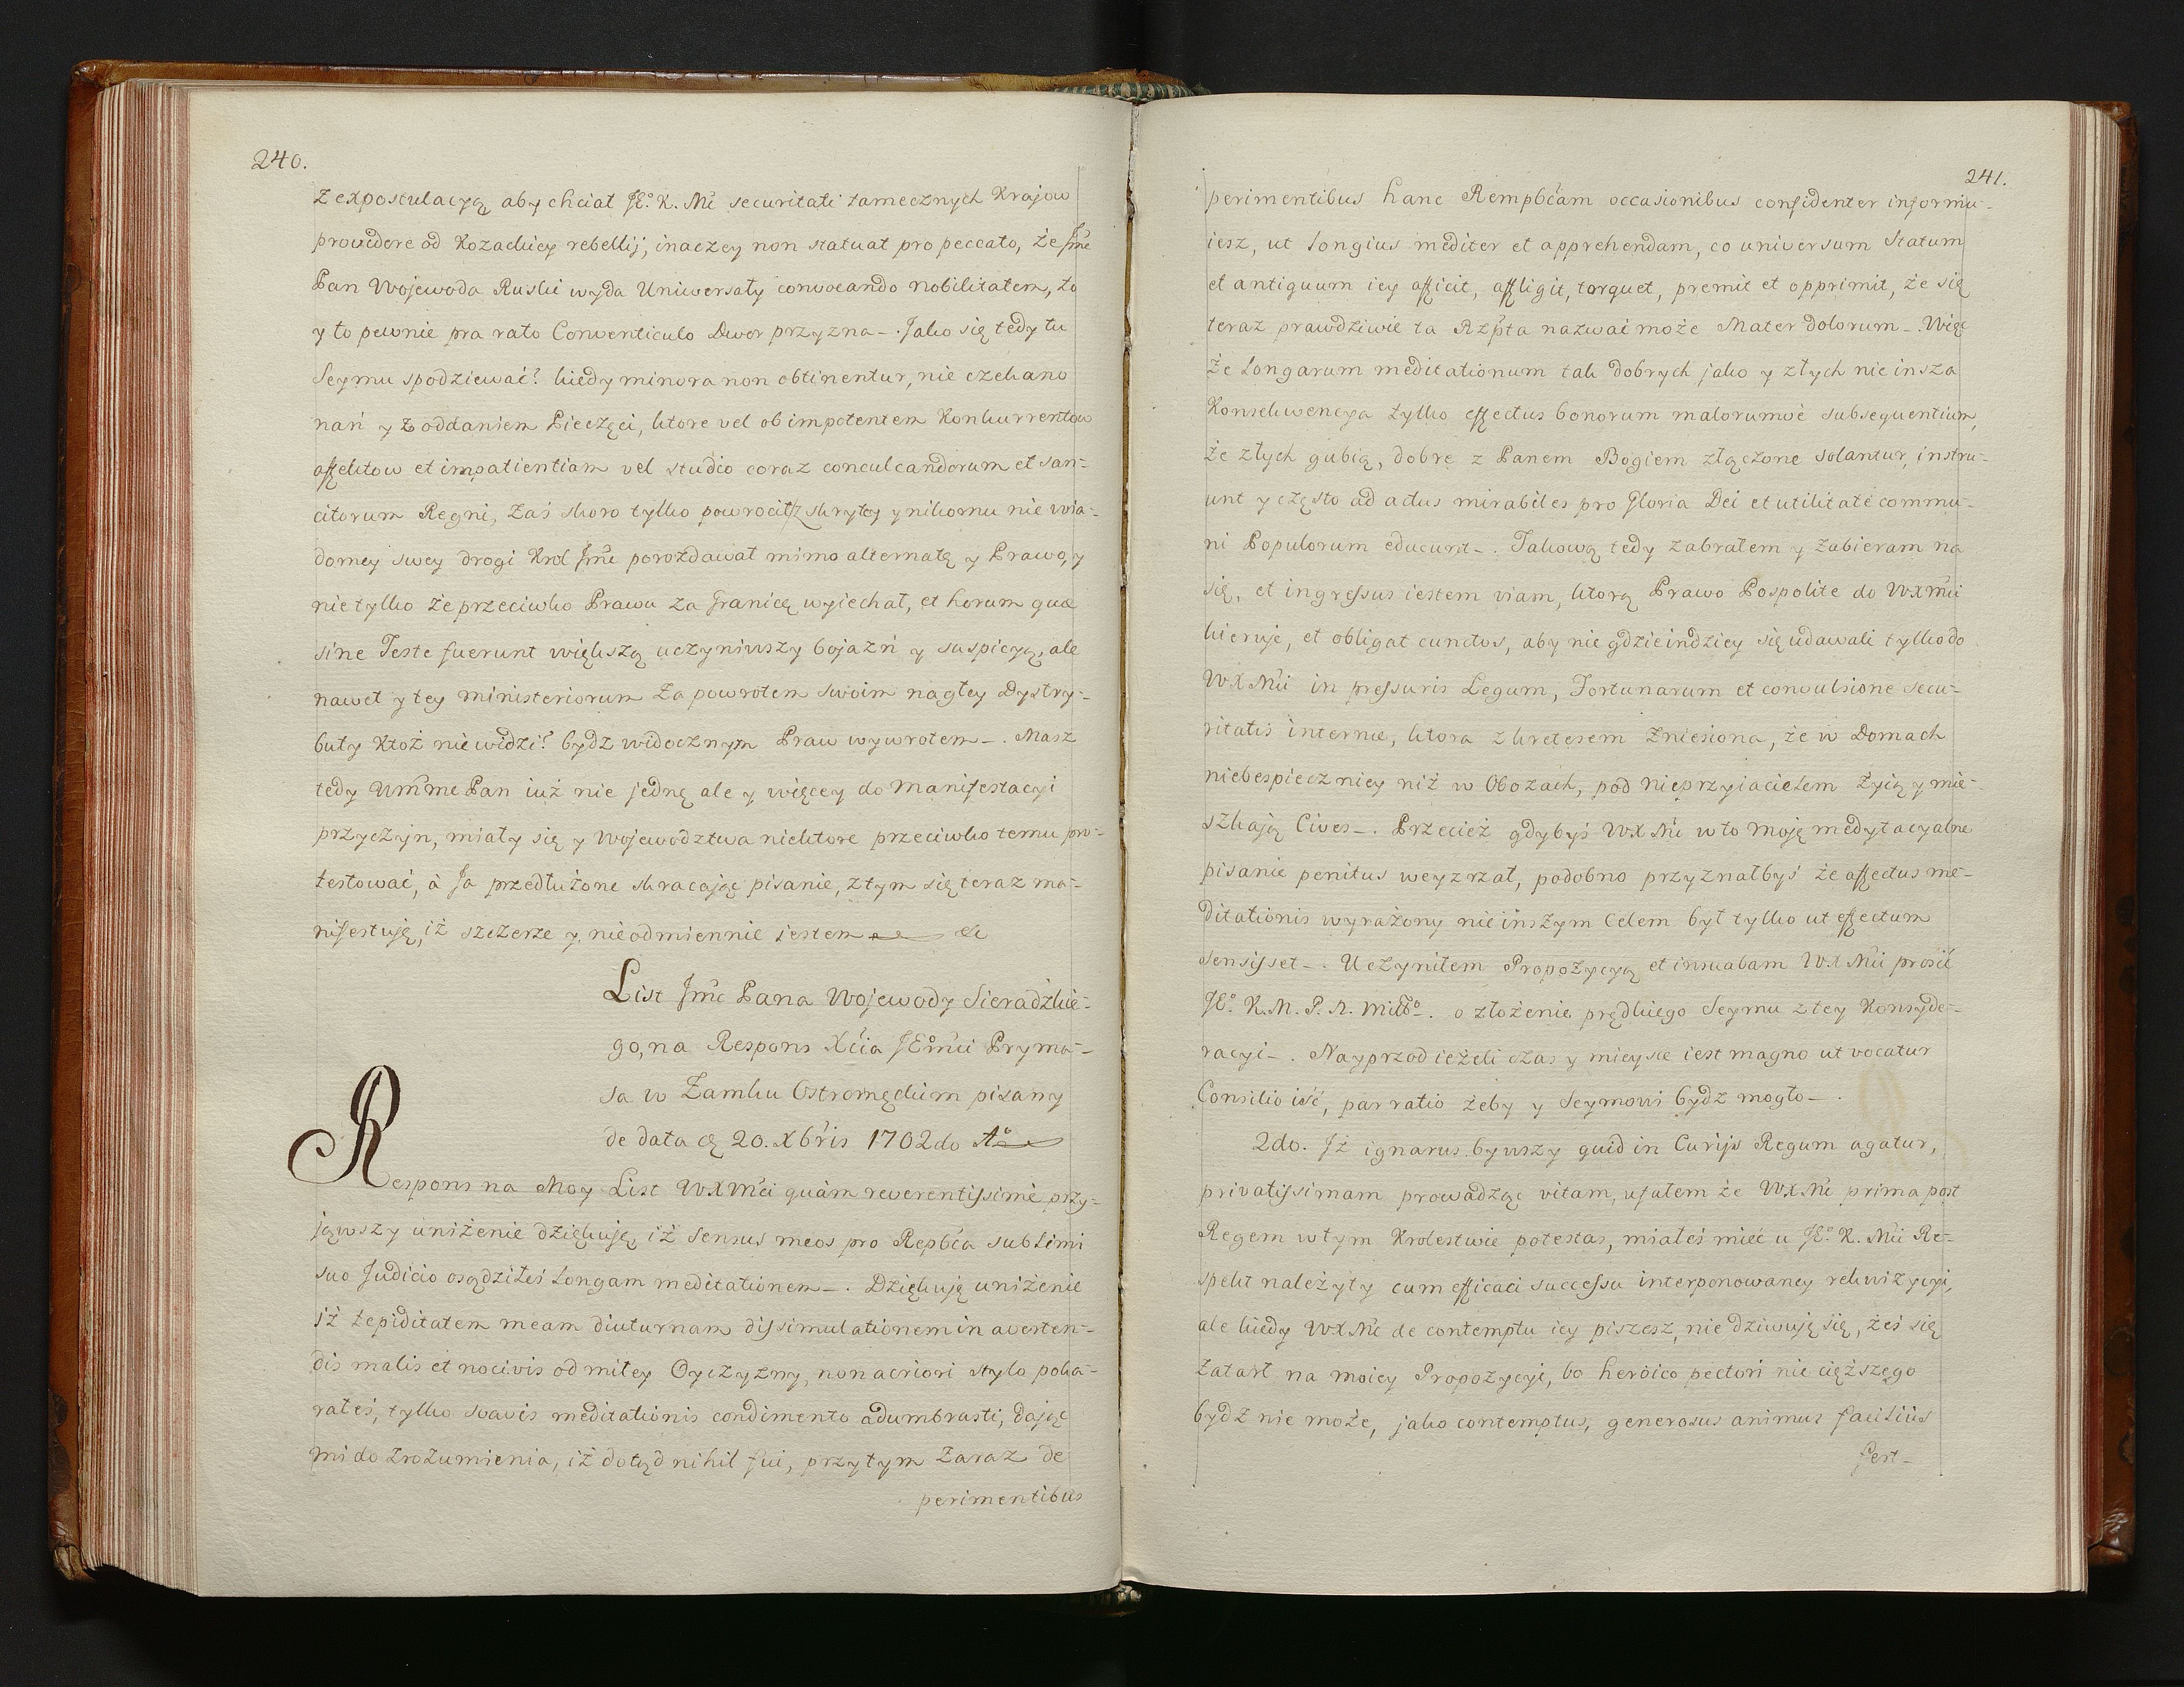 240.
z expostulacyą aby chciał JE.º K. Mć securitati tamecznych Krajow
providere od Kozackiey rebellij, inaczey non statuat pro peccato, że Jmć
Pan Wojewoda Ruski wyda Uniwersały convocando nobilitatem, to
y to pewnie pra rato Conventiculo Dwor przyzna -. Jako się tedy tu
Seymu spodziewać? kiedy minora non obtinentur, nie czekano
nań y z oddaniem Pieczęci, ktore vel ob impotentem Konkurrentow
affektow et impatientiam vel studio coraz conculcandorum et san-
citorum Regni, zaś skoro tylko powrocił z skrytey y nikomu nie wia-
domey swey drogi Krol Jmć porozdawał mimo alternatę y Prawo, y
nie tylko że przeciwko Prawu za Granicę wyiechał, et horum quæ
sine Teste fuerunt większą uczyniwszy bojaźń y suspicyą, ale
nawet y tey ministeriorum za powrotem swoim nagłey Dystry-
buty ktoż nie widzi? bydź widocznym Praw wywrotem -. Masz
tedy Wmme Pan iuż nie jednę ale y więcey do Manifestacyi
przyczyn, miały się y Wojewodztwa niektore przeciwko temu pro-
testować, à Ja przedłużone skracając pisanie, z tym się teraz ma-
nifestuję, iż szczerze y nieodmiennie iestem etc
List Jmć Pana Wojewody Sieradzkie-
go, na Respons Xćia JEºmći Pryma-
sa w Zamku Ostromęckim pisany
de data ą 20. Xbris 1702do Aº
Respons na Moy List WXMći quàm reverentissimè przy-
jąwszy uniżenie dziękuję, iż sensus meos pro Repbća sublimi
suo Judicio osądziłeś longam meditationem -. Dziękuję uniżenie
iż tepiditatem meam diuturnam dissimulationem in averten-
dis malis et nocivis od miłey Oyczyzny, non acriori stylo poka-
rałeś, tylko suavis meditationis condimento adumbrasti, dając
mi do zrozumienia, iż dotąd nihil fui, przytym zaraz de
perimentibus
241.
perimentibus hanc Rempbćam occasionibus confidenter informu-
iesz, ut longius mediter et apprehendam, co universum Statum
et antiquum iey afficit, affligit, torquet, premit et opprimit, że się
teraz prawdziwie ta Rzpta nazwać może Mater dolorum -. Więc
że longarum meditationum tak dobrych jako y złych nie insza
Konsekwencya tylko effectus bonorum malorumvè subsequentium,
że złych gubią, dobre z Panem Bogiem złączone solantur, instru-
unt y często ad actus mirabiles pro Gloria Dei et utilitate commu-
ni Populorum educunt -. Takową tedy zabrałem y zabieram na
się, et ingressus iestem viam, ktorą Prawo Pospolite do WXMći
kieruje, et obligat cunctos, aby nie gdzieindziey się udawali tylko do
WXMći in pressuris Legum, Fortunarum et convulsione secu-
ritatis internæ, ktora z kretesem zniesiona, że w Domach
niebespieczniey niż w Obozach, pod nieprzyiacielem żyią y mie-
szkają Cives -. Przecież gdybyś WXMć w to moję medytacyalne
pisanie penitus weyzrzał, podobno przyznałbyś że affectus me-
ditationis wyrażony nie inszym celem był tylko ut effectum
sensisset -. Uczyniłem Propozycyą et insuabam WXMći prosić
JEº. K. M. P. N. Miłº. o złożenie prędkiego Seymu z tey Konsyde-
racyi -. Nayprzod ieżeli czas y mieysce iest magno ut vocatur
Consilio iść, par ratio żeby y Seymowi bydź mogło -.
2do. Iż ignarus bywszy quid in Curijs Regum agatur,
privatissimam prowadząc vitam, ufałem że WXMć prima post
Regem w tym Krolestwie potestas, miałeś mieć u JEº. K. Mći Re-
spekt należyty cum efficaci successu interponowaney rekwizycyi,
ale kiedy WXMć de contemptu iey piszesz, nie dziwuję się, żeś się
zatarł na moiey Propozycyi, bo heròico pectori nic cięższego
bydź nie może, jako contemptus, generosus animus faciliùs
fert-